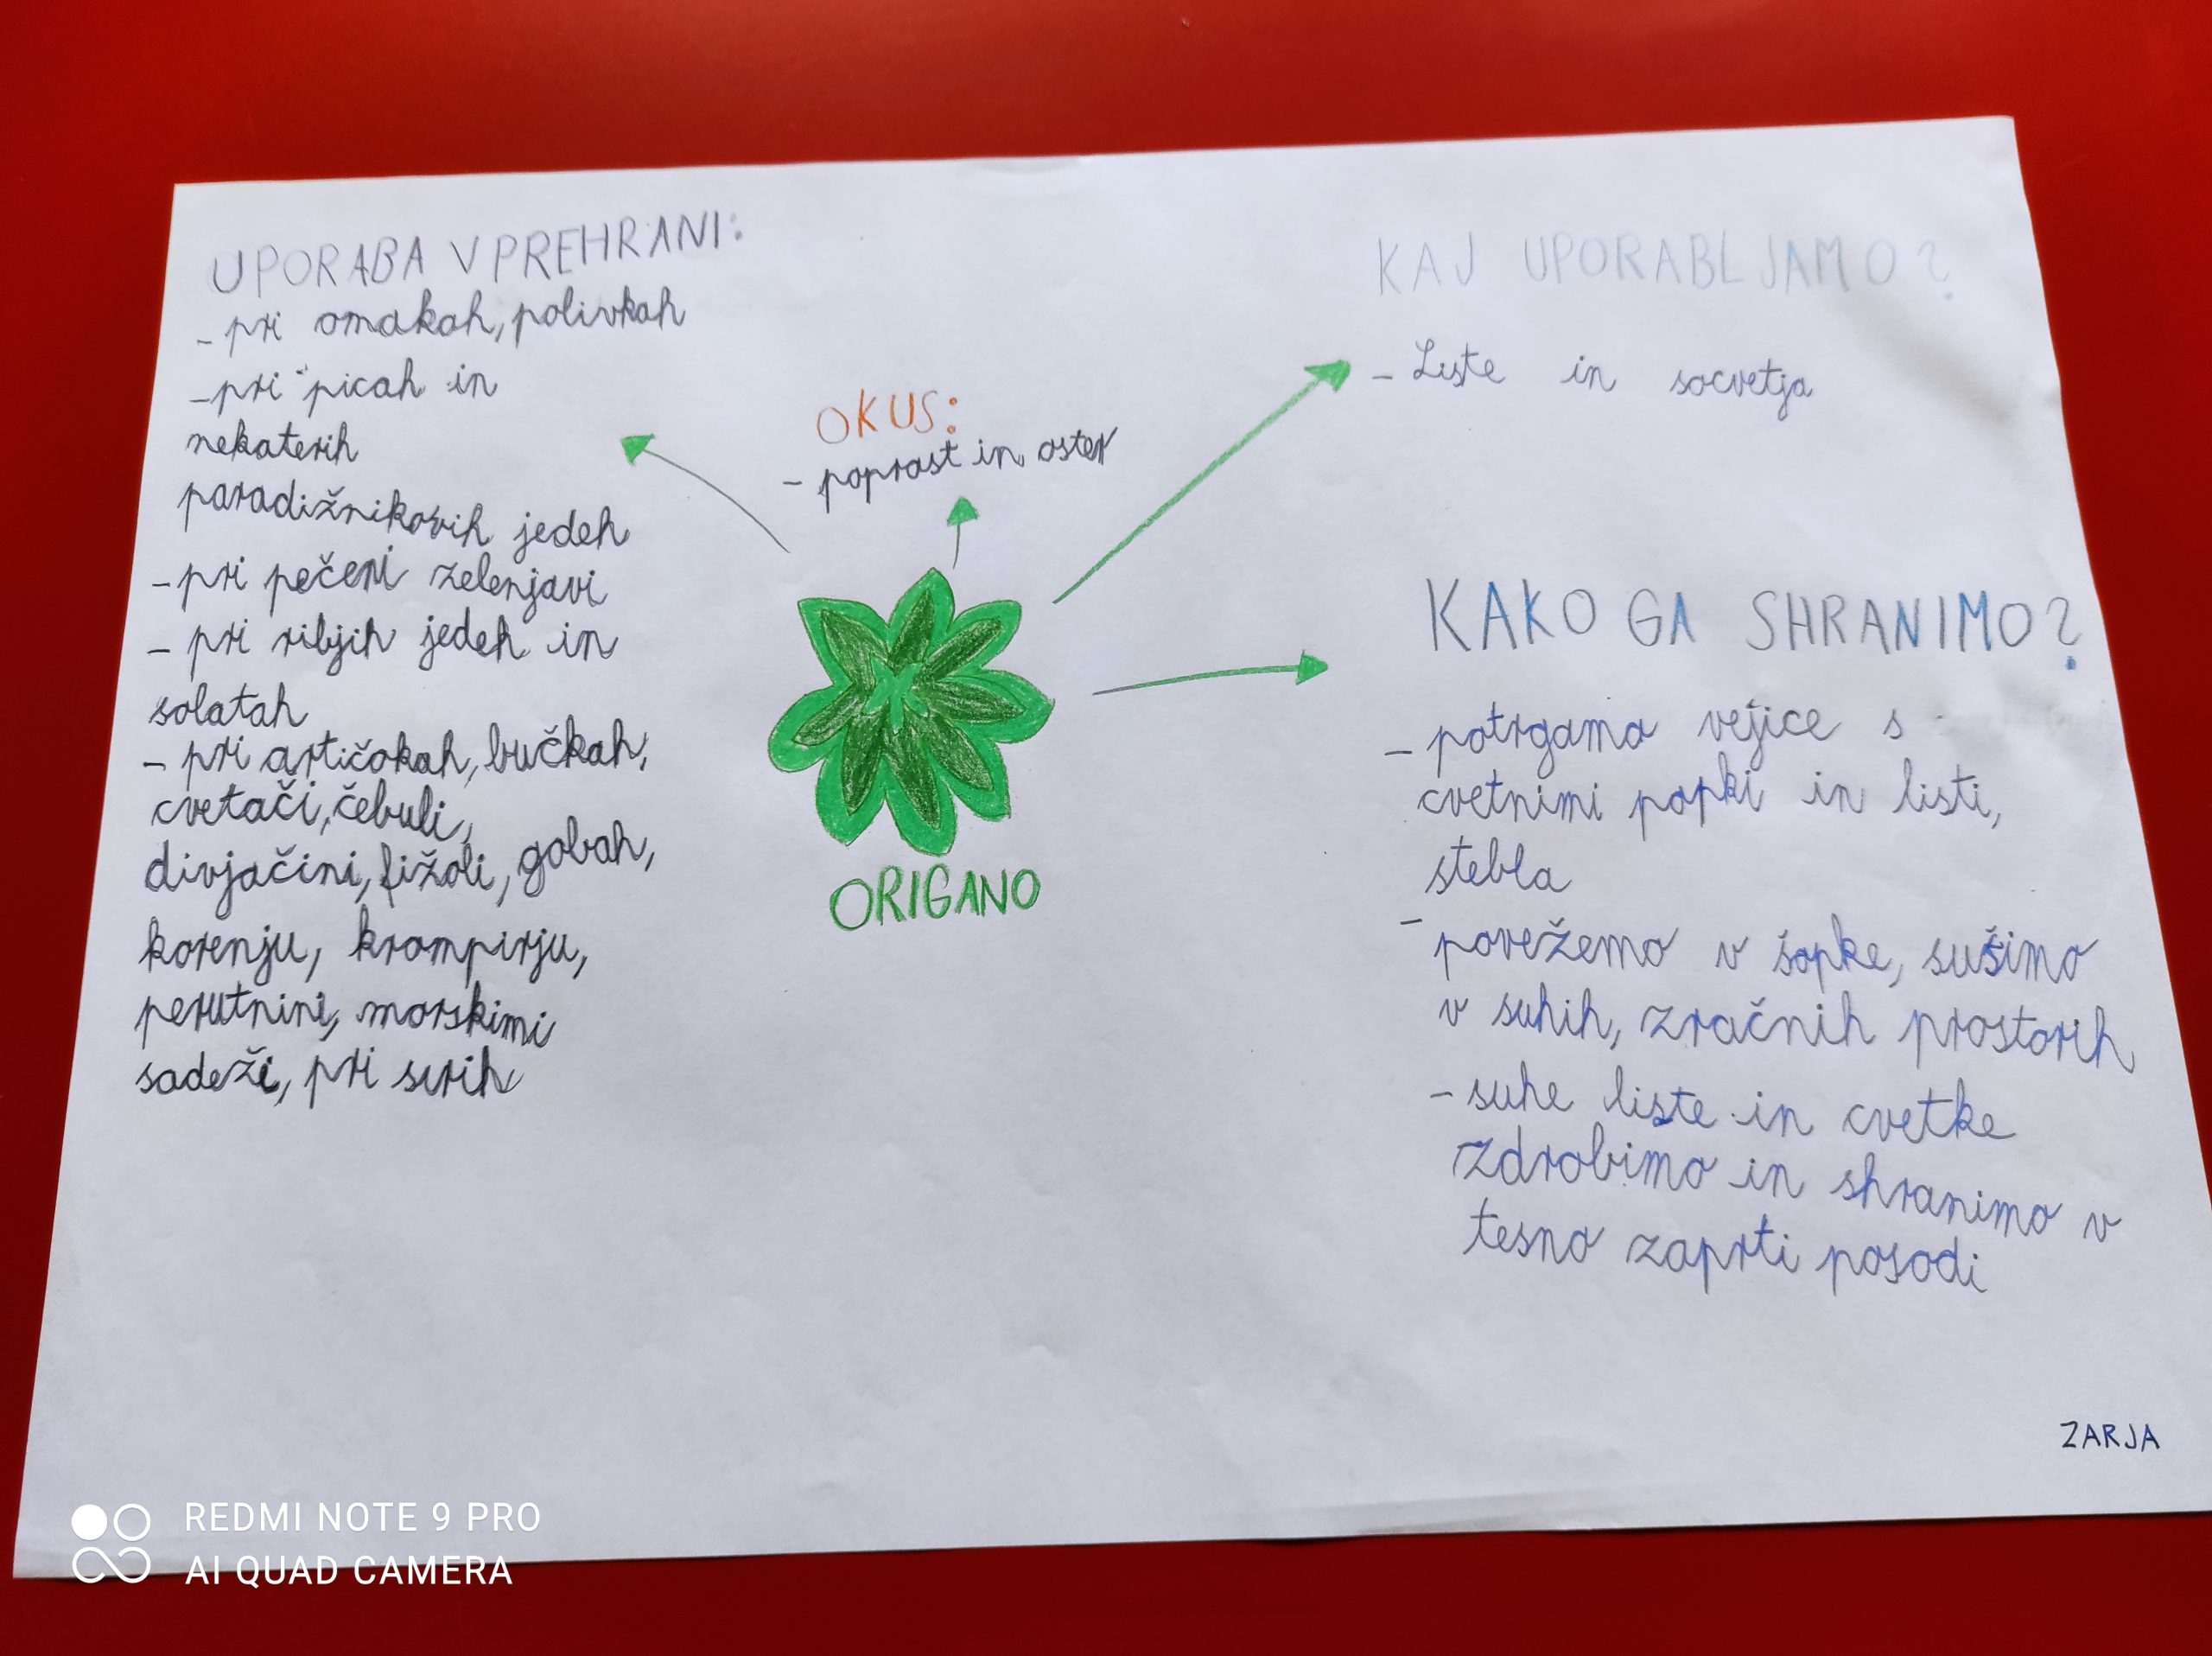 UPORABA V PREHRANI:
- pri omakah, polivkah
- pri picah in
nekaterih
paradižnikovih jedeh
- pri pečeni zelenjavi
- pri ribjih jedeh in
solatah
- pri artičokah, bučkah,
cvetači, čebuli,
divjačini, fižoli, gobah,
korenju, krompirju,
perutnini, morskimi
sadeži, pri sirih
OKUS:
- poprast in oster
ORIGANO
KAJ UPORABLJAMO?
- Liste in socvetja
KAKO GA SHRANIMO?
- potrgamo vejice s
cvetnimi popki in listi,
stebla
- povežemo v šopke, sušimo
v suhih, zračnih prostorih
- suhe liste in cvetke
zdrobimo in shranimo v
tesno zaprti posodi
ZARJA
REDMI NOTE 9 PRO
AI QUAD CAMERA